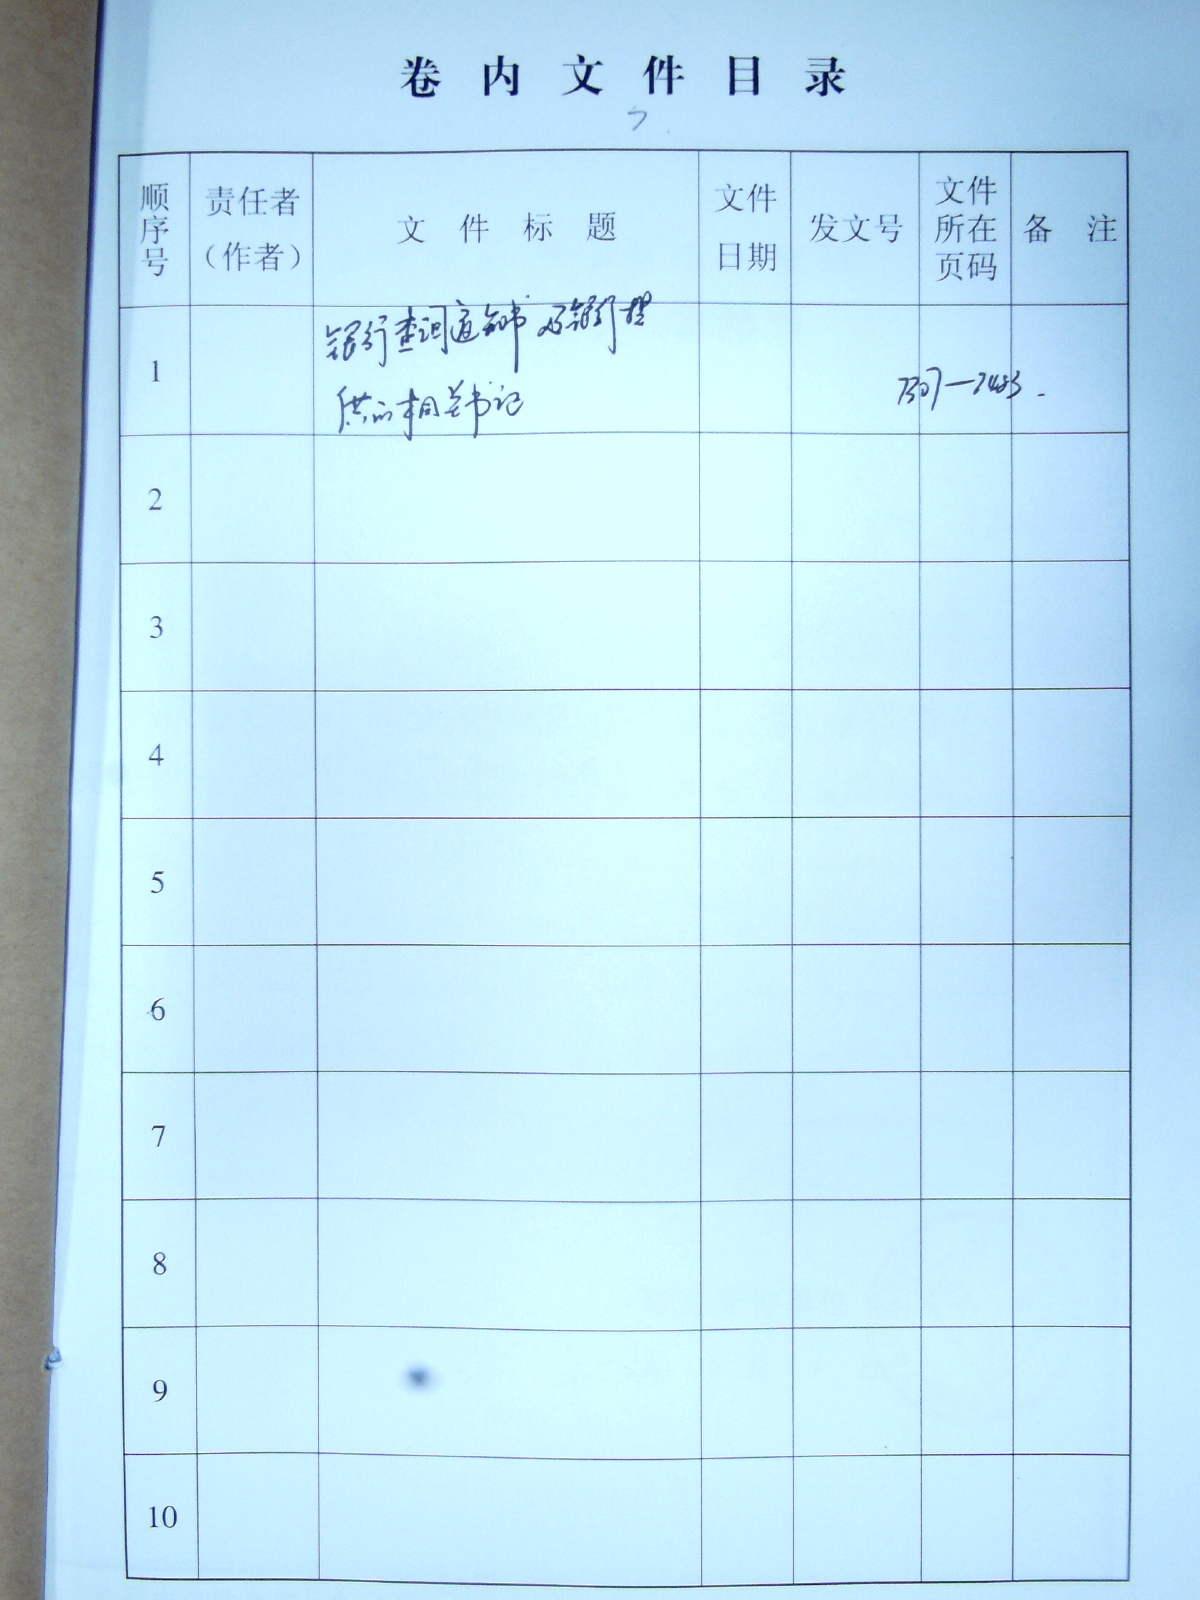 卷内文件目录
顺序号
责任者
(作者)
文件标题
文件
日期
发文号
文件
所在
页码
备注
1
银行查询通知书及银行提
供的相关书记
2
3
4
5
6
7
8
9
10